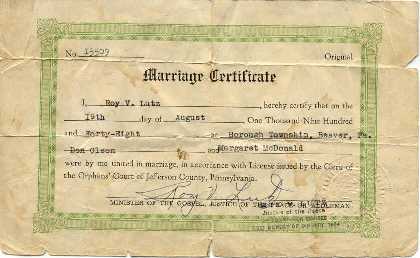 No. 15509 Original
Marriage Certificate
I, Roy V. Lutz, hereby certify that on the
19th day of August One Thousand Nine Hundred
and Forty-Eight at Borough Township, Beaver, Pa.
Don Olson and Margaret McDonald
were by me united in marriage, in accordance with License issued by the Clerk of
the Orphans' Court of Jefferson County, Pennsylvania.
Roy V. Lutz
MINISTER OF THE GOSPEL, JUSTICE OF THE PEACE OR ALDERMAN
Justice of the Peace